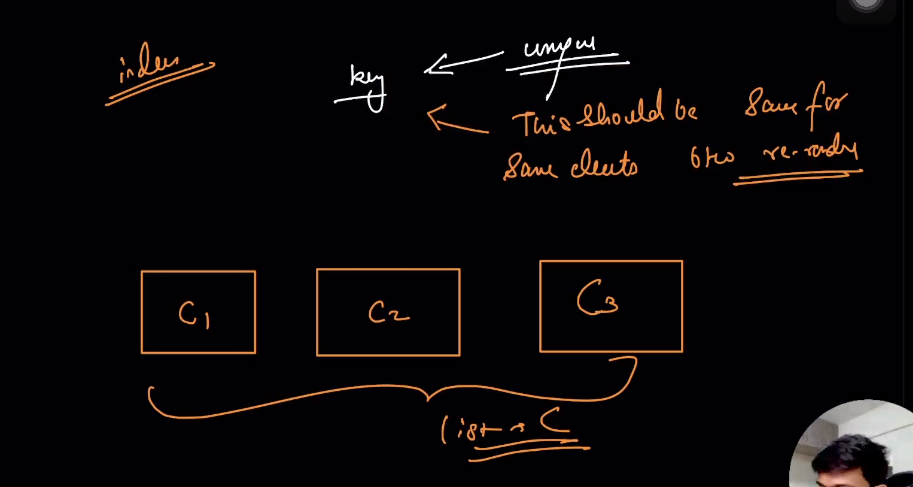 index
key
unique
This should be same for
same elements b/w re-render
C1
C2
C3
list → C